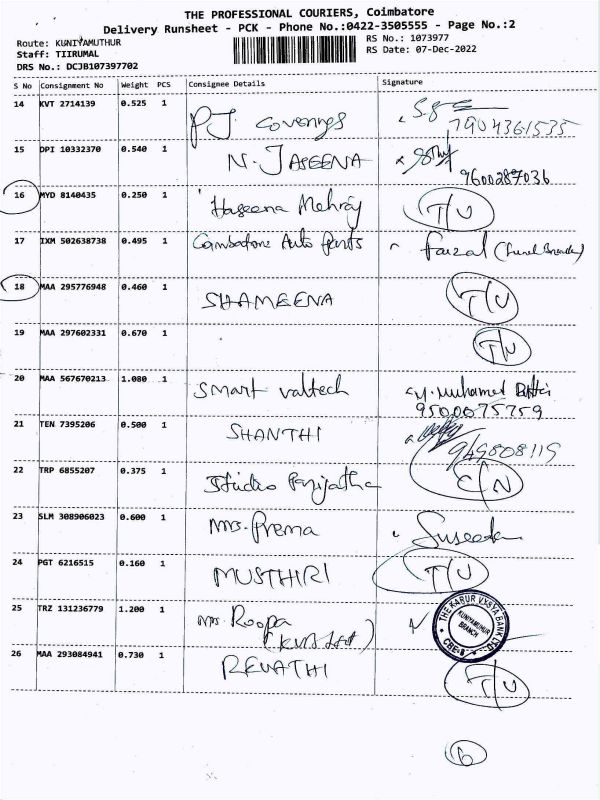 THE PROFESSIONAL COURIERS, Coimbatore
Delivery Runsheet - PCK - Phone No.:0422-3505555 - Page No.:2
Route: KUNIYAMUTHUR
RS No.: 1073977
Staff: TIIRUMAL
RS Date: 07-Dec-2022
DRS No.: DCJB107397702
S No Consignment No Weight PCS Consignee Details Signature
14 KVT 2714139 0.525 1 P.J. Coverings
7904361535
15 DPI 10332370 0.540 1 N. JASEENA
9600287036
16 MYD 8140435 0.250 1 Haseena Mehraj T/U
17 IXM 502638738 0.495 1 Coimbatore Auto Parts Faizal
18 MAA 295776948 0.460 1 SHAMEENA T/U
19 MAA 297602331 0.670 1 T/U
20 MAA 567670213 1.080 1 Smart valtech M. Muhamed
9500075759
21 TEN 7395206 0.500 1 SHANTHI
949808119
22 TRP 6855207 0.375 1 Studio Parijatha C/N
23 SLM 308906023 0.600 1 Mrs. Prema
24 PGT 6216515 0.160 1 MUSTHIRI T/U
25 TRZ 131236779 1.200 1 Mrs. Roopa
THE KARUR VYSYA BANK LTD.
KUNIYAMUTHUR
BRANCH
CBE-8
26 MAA 293084941 0.730 1 REVATHI T/U
6